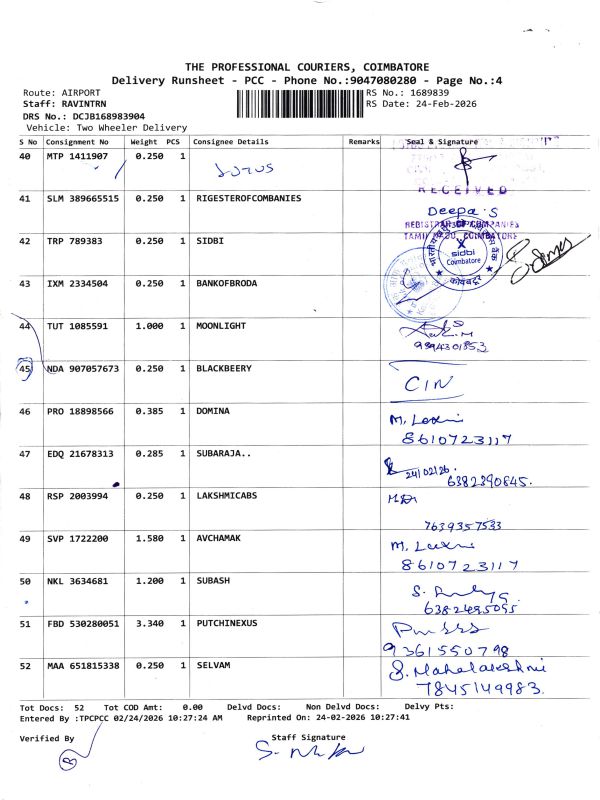 THE PROFESSIONAL COURIERS, COIMBATORE
Delivery Runsheet - PCC - Phone No.:9047080280 - Page No.:4
Route: AIRPORT RS No.: 1689839
Staff: RAVINTRN RS Date: 24-Feb-2026
DRS No.: DCJB168983904
Vehicle: Two Wheeler Delivery
S No Consignment No Weight PCS Consignee Details Remarks Seal & Signature
40 MTP 1411907 0.250 1 LOTUS
RECEIVED
41 SLM 389665515 0.250 1 RIGESTEROFCOMBANIES Deepa S
REGISTRAR OF COMPANIES
TAMIL NADU, COIMBATORE
42 TRP 789383 0.250 1 SIDBI sidbi Coimbatore
कोयंबटूर
43 IXM 2334504 0.250 1 BANKOFBRODA
44 TUT 1085591 1.000 1 MOONLIGHT
9894301353
45 NDA 907057673 0.250 1 BLACKBEERY CIN
46 PRO 18898566 0.385 1 DOMINA M. Laxmi
8610723117
47 EDQ 21678313 0.285 1 SUBARAJA.. 24/02/26.
6382390845.
48 RSP 2003994 0.250 1 LAKSHMICABS
7639357533
49 SVP 1722200 1.580 1 AVCHAMAK M. Laxmi
8610723117
50 NKL 3634681 1.200 1 SUBASH
6382495055
51 FBD 530280051 3.340 1 PUTCHINEXUS
9361550798
52 MAA 651815338 0.250 1 SELVAM S. Mahalakshmi
7845149983.
Tot Docs: 52 Tot COD Amt: 0.00 Delvd Docs: Non Delvd Docs: Delvy Pts:
Entered By :TPCPCC 02/24/2026 10:27:24 AM Reprinted On: 24-02-2026 10:27:41
Verified By Staff Signature